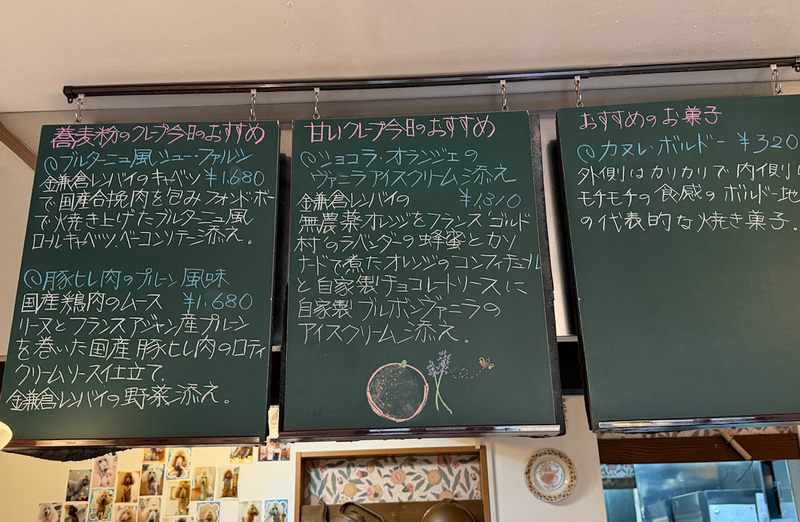 蕎麦粉のクレープ今日のおすすめ
ブルターニュ風シュー・ファルシ
金鎌倉レンバイのキャベツ ¥1.680
で国産合挽肉を包みフォンドボー
で焼き上げたブルターニュ風
ロールキャベツ、ベーコンソテー添え。
豚ヒレ肉のプルーン風味
国産鶏肉のムース ¥1.680
リーヌとフランスアジャン産プルーン
を巻いた国産豚ヒレ肉のロティ
クリームソース仕立て、
金鎌倉レンバイの野菜添え。
甘いクレープ今日のおすすめ
ショコラ・オランジェの
ヴァニラアイスクリーム添え
金鎌倉レンバイの ¥1,310
無農薬オレンジをフランスゴルド
村のラベンダーの蜂蜜とカソ
ナードで煮たオレンジのコンフィチュール
と自家製チョコレートソースに
自家製ブルボンヴァニラの
アイスクリーム添え。
おすすめのお菓子
カヌレ・ボルドー ¥320
外側はカリカリで内側は
モチモチの食感のボルドー地
の代表的な焼き菓子。